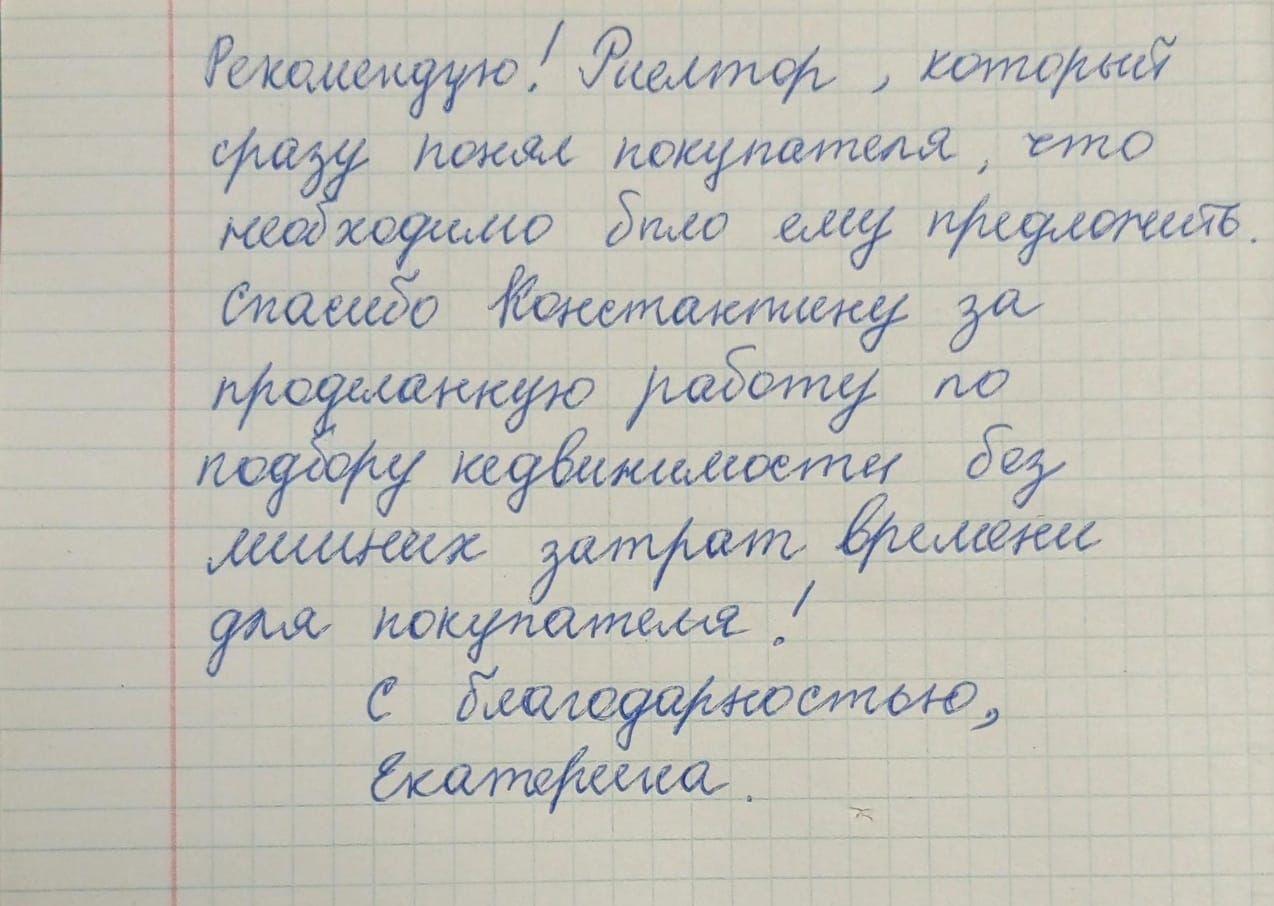 Рекомендую! Риелтор, который
сразу понял покупателя, что
необходимо было ему предложить.
Спасибо Константину за
проделанную работу по
подбору недвижимости без
лишних затрат времени
для покупателя!
С благодарностью,
Екатерина.